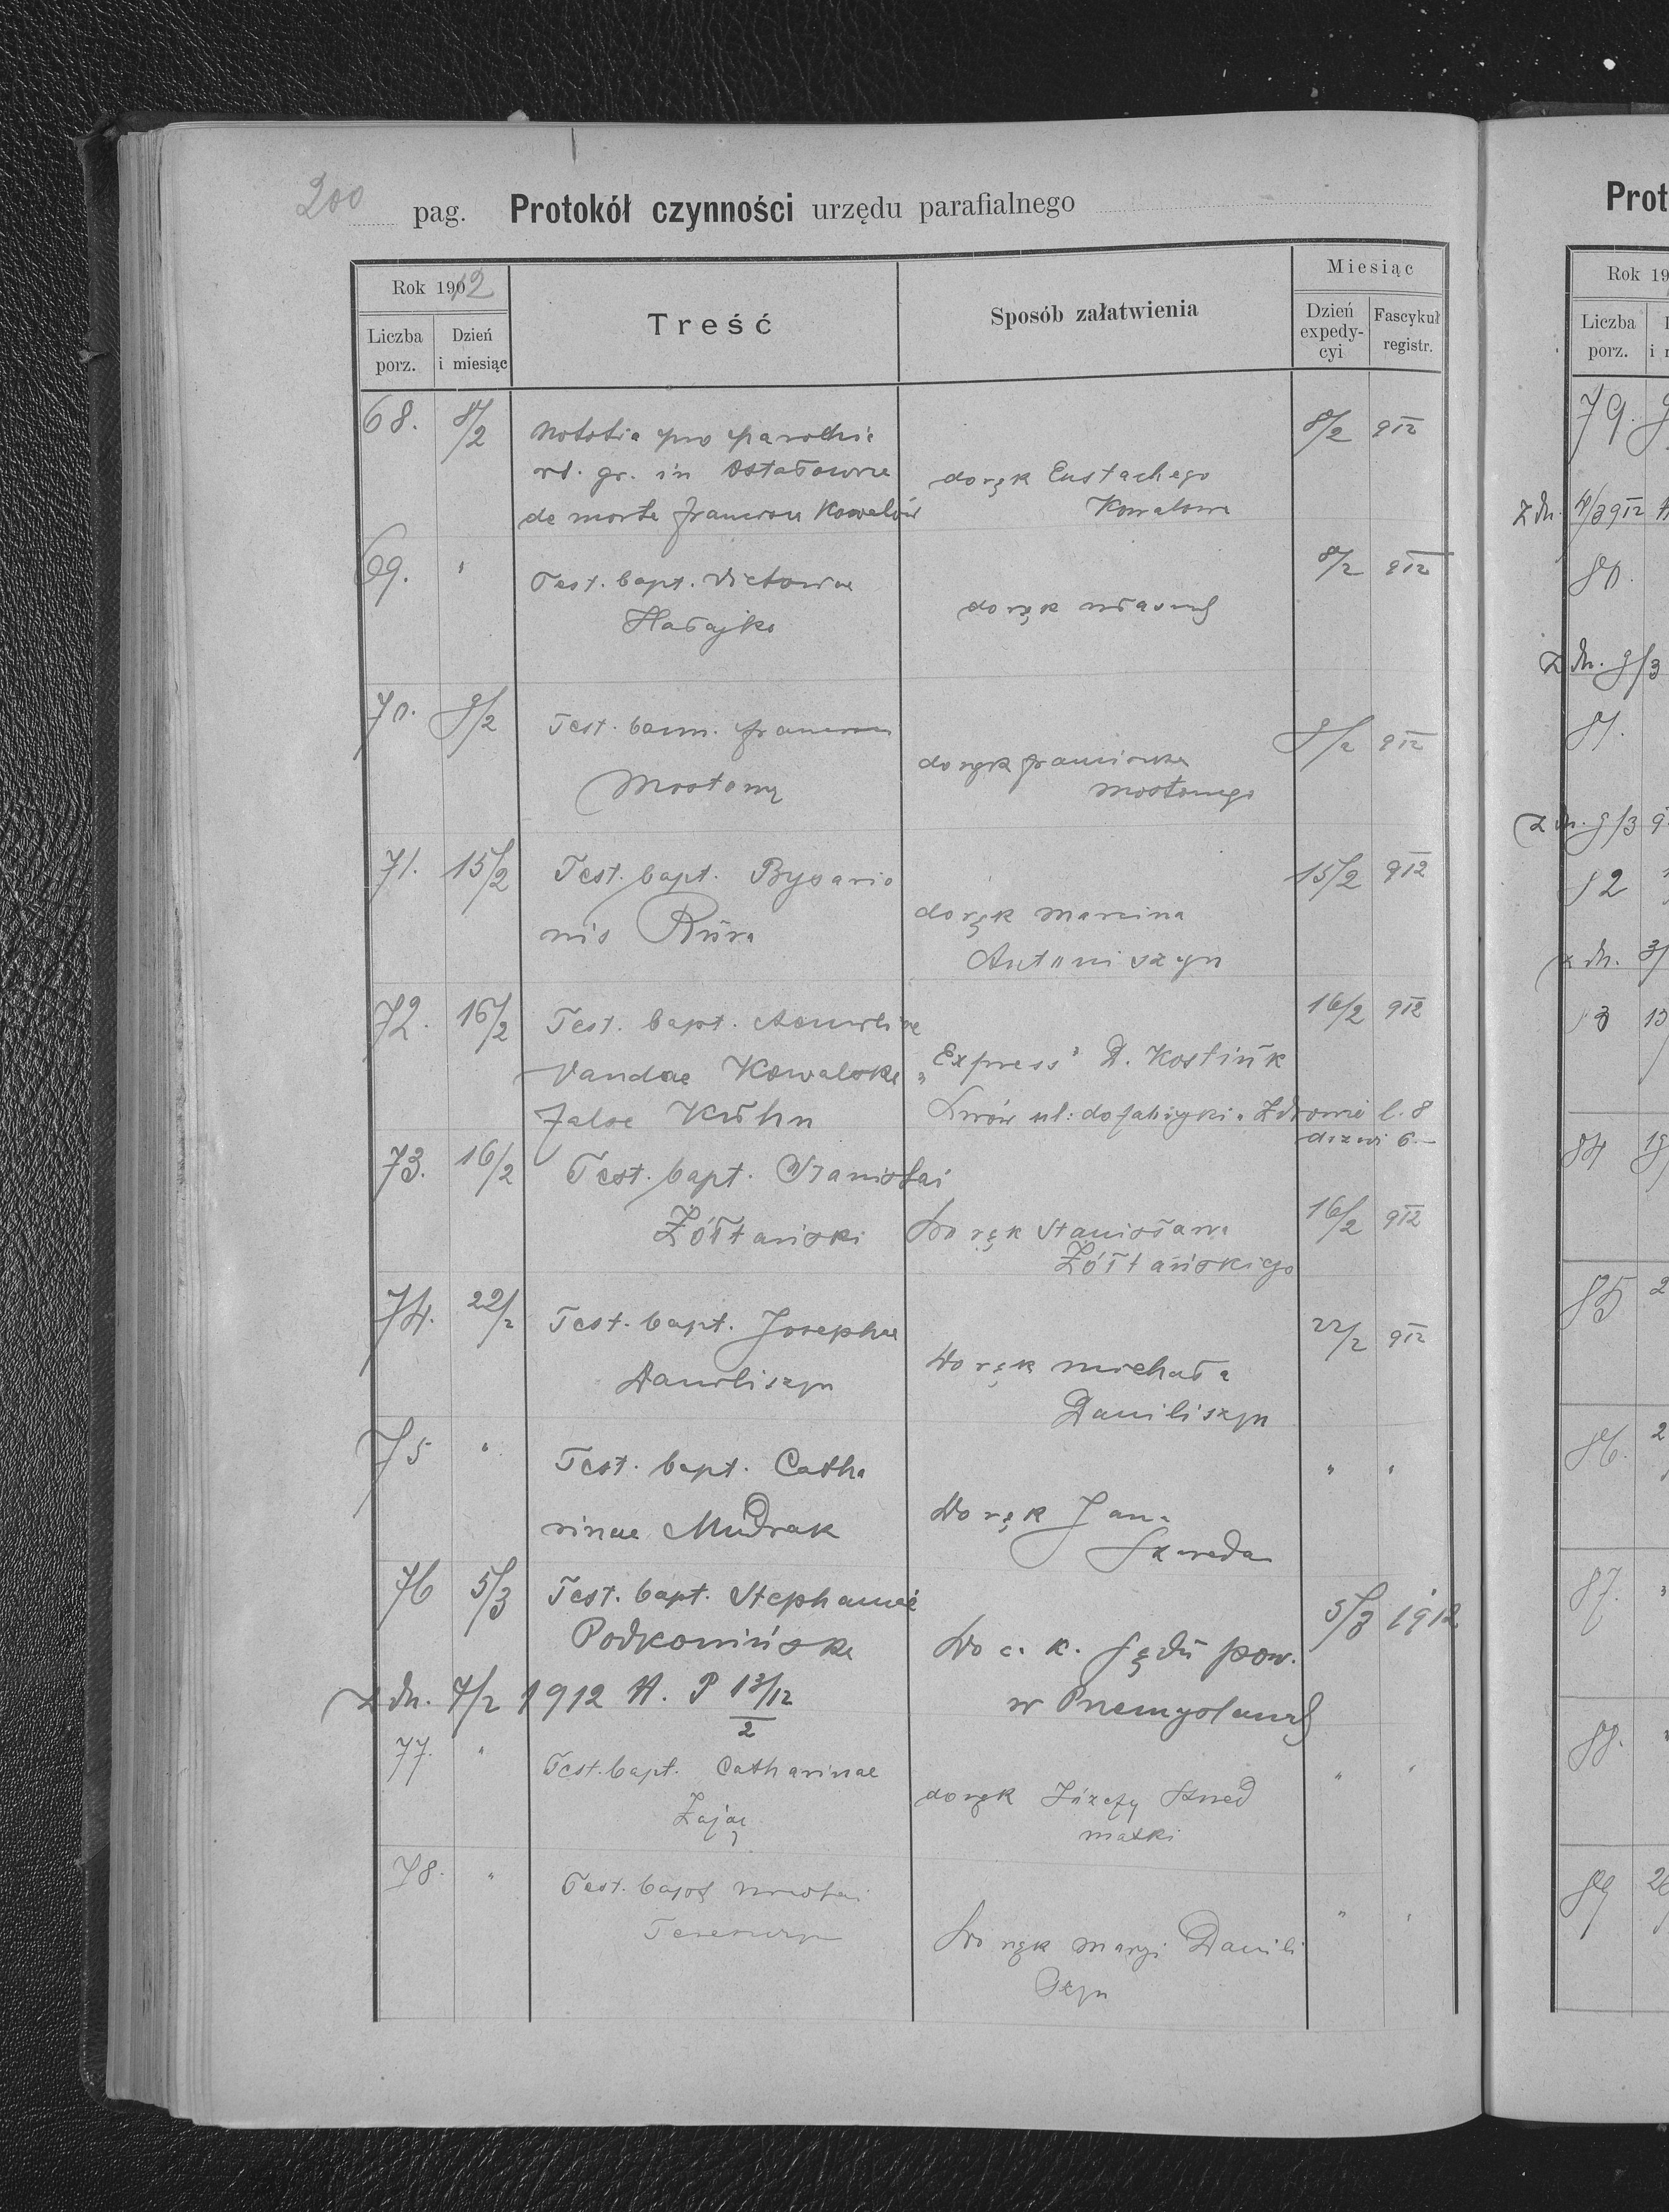 200 pag. Protokół czynności urzędu parafialnego
Rok 1912
Liczba porz.
Dzień i miesiąc
Treść
Sposób załatwienia
Miesiąc
Dzień expedy-cyi
Fascykuł registr.
68. 8/2 Notitia pro parochia
rt. gr. in Ostałowce
de morte Kowalów
do ręk Eustachego
Kowalowa
8/2 912
69. " Test. bapt. Victoriae
Hałajko
do ręk
8/2 912
70. 9/2 Test. bann.
Mostowy
do ręk Franciszka
Mostowego
9/2 912
71. 15/2 Test. bapt. Bysario
nis Rura
do ręk Marcina
Antoniszyn
15/2 912
72. 16/2 Test. bapt.
Vandae Kowalska
false Kühn
„Express" D.
Lwów ul: do fabryki l. 8
drzwi 6.—
16/2 912
73. 16/2 Test. bapt. Stanislai
Żółtański
Do ręk Stanisława
Żółtańskiego
16/2 912
74. 22/2 Test. bapt. Josephae
Daniliszyn
Do ręk Michała
Daniliszyn
22/2 912
75 " Test. bapt. Catha
rinae Mudrak
Do ręk Jana
" "
76 5/3 Test. bapt. Stephaniae
Podkomińska
Do c. k. Sądu pow.
w
5/3 1912
z dn. 7/2 1912 A. P 13/12
2
77. " Test. bapt. Catharinae
Zając
do ręk Józefy
matki
" "
78. " Test. bapt.
Do ręk Maryi Danili
szyn
" "
Prot
Rok 19
Liczba porz.
79.
z dn. 4/3 912
80.
z dn. 9/3
81.
z dn. 9/3
82
z dn.
83 13
84
85 2
86. 2
87.
88.
89